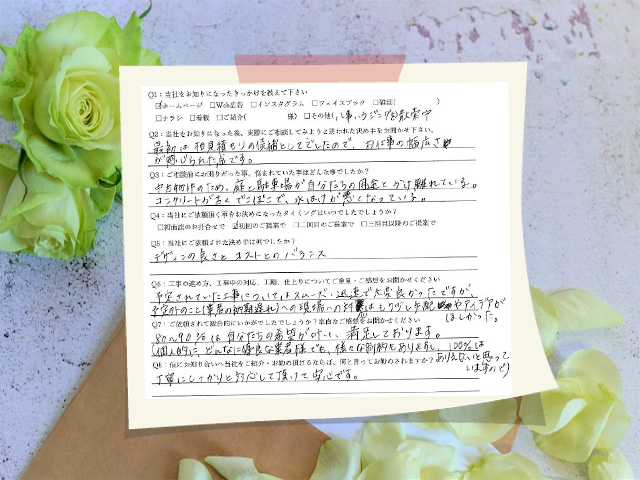 Q1：当社をお知りになったきっかけを教えて下さい
☑ホームページ □Web広告 □インスタグラム □フェイスブック □雑誌( )
□チラシ □看板 □ご紹介( 様) □その他(
Q2：当社をお知りになった後、実際にご相談してみようと思われた決め手をお聞かせ下さい。
最初は相見積もりの候補としてでしたので、お仕事の幅広さ
が感じられた点です。
Q3：ご相談前にお困りだった事、悩まれていた事はどんな事でしたか？
中古物件のため、庭と駐車場が自分たちの用途とかけ離れている。
コンクリートが古くでこぼこで、水はけが悪くなっている。
Q4：当社にご依頼頂く事をお決めになったタイミングはいつでしたでしょうか？
□初回面談のお打合せで ☑初回のご提案で □二回目のご提案で □三回目以降のご提案で
Q5：当社にご依頼された決め手は何でしたか？
デザインの良さとコストとのバランス
Q6：工事の進め方、工事中の対応、工期、仕上りについてご意見・ご感想をお聞かせください
予定されていた工事についてはスムーズ・迅速で大変良かったですが、
予定外のこと(業者の納期遅れ)への現場への対応はもう少し手配やアイデアが
ほしかった。
Q7：ご依頼されて総合的にいかがでしたでしょうか？率直なご感想をお聞かせください
80〜90%は自分たちの希望が叶い、満足しております。
(個人的に、どんなに優良な業者様でも、様々な制約もありますし、100%は
ありえないと思って
いますので)
Q8：仮にお知り合いへ当社をご紹介・お勧め頂けるならば、何と言ってお勧めされますか？
丁寧にしっかりと対応して頂けて安心です。